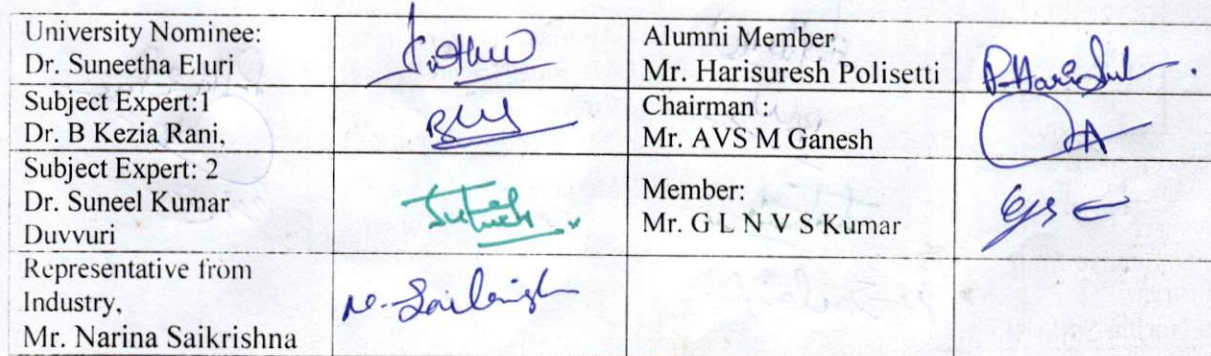 University Nominee:
Dr. Suneetha Eluri
Alumni Member
Mr. Harisuresh Polisetti
P. Hari
Subject Expert:1
Dr. B Kezia Rani,
Chairman :
Mr. AVS M Ganesh
Subject Expert: 2
Dr. Suneel Kumar
Duvvuri
Member:
Mr. G L N V S Kumar
Representative from
Industry,
Mr. Narina Saikrishna